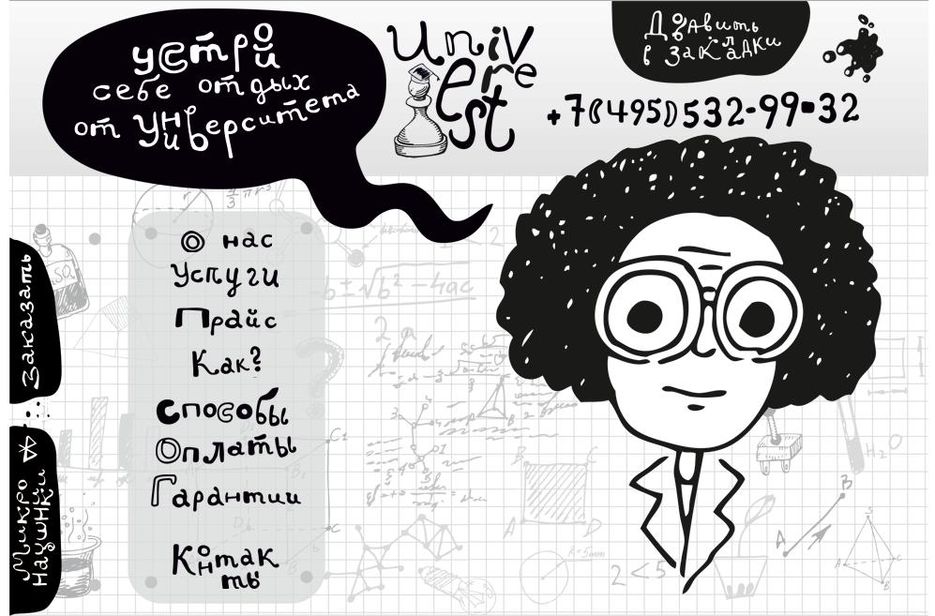 устрой
себе отдых
от Университета
Univ
ere
st
Добавить
в закладки
+7(495)532-99-32
О нас
Услуги
Прайс
Как?
Способы
Оплаты
Гарантии
Контак
ты
Заказать
Микро
наушники
-b±√b²-4ac
2<5